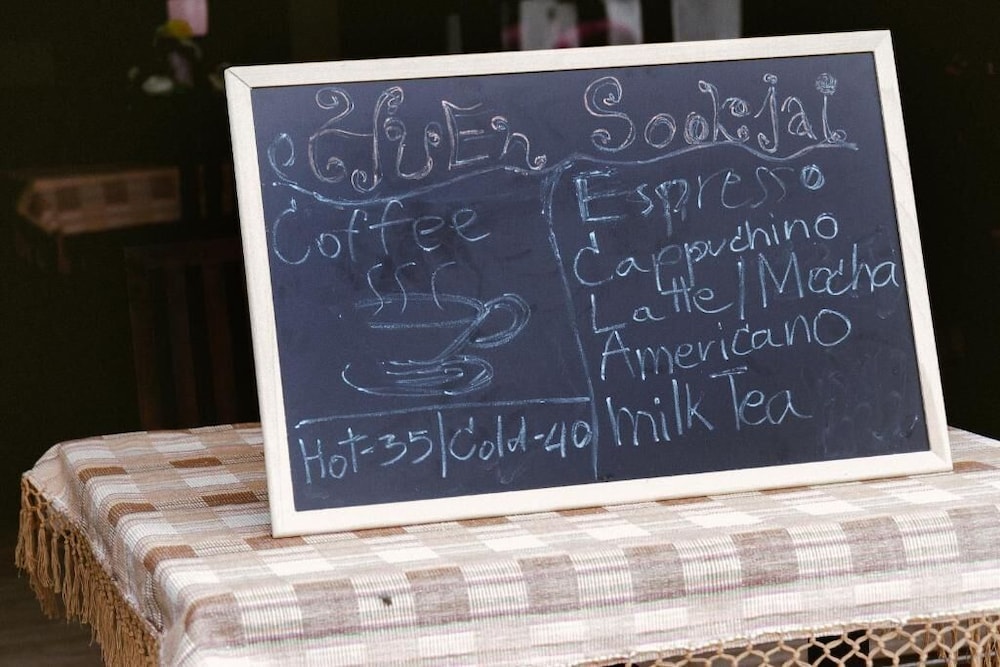 Huen Sookjai
Coffee
Hot-35|Cold-40
Espresso
Cappuchino
Latte/Mocha
Americano
milk Tea